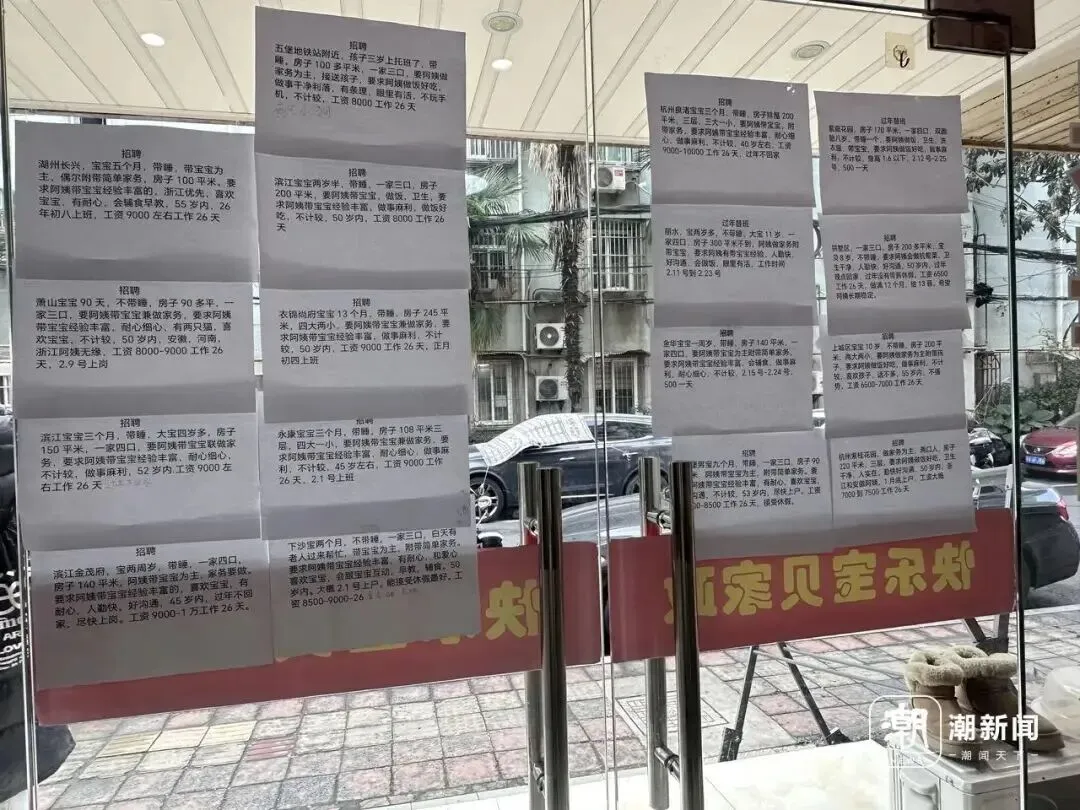 招聘
湖州长兴，宝宝五个月，带睡，带宝宝为
主，偶尔附带简单家务，房子100平米，要
求阿姨带宝宝经验丰富的，浙江优先，喜欢
宝宝，有耐心，会辅食早教，55岁内，26
年初八上班，工资9000左右工作26天
招聘
萧山宝宝90天，不带睡，房子90多平，一
家三口，要阿姨带宝宝兼做家务，要求阿姨
带宝宝经验丰富，耐心细心，有两只猫，喜
欢宝宝，不计较，50岁内，安徽，河南，
浙江阿姨无缘，工资8000-9000工作26
天，2.9号上岗
招聘
滨江宝宝三个月，带睡，大宝四岁多，房子
150平米，一家四口，要阿姨带宝宝联做家
务，要求阿姨带宝宝经验丰富，耐心细心，
不计较，做事麻利，52岁内.工资9000左
右工作26天
招聘
滨江金茂府，宝两周岁，带睡，一家四口，
房子140平米，阿姨带宝宝为主，家务要做，
要求阿姨带宝宝经验丰富的，喜欢宝宝，有
耐心，人勤快，好沟通，45岁内，过年不回
家，尽快上岗。工资9000-1万工作26天。
招聘
五堡地铁站附近，孩子三岁上托班了，带
睡，房子100多平米，一家三口，要阿姨做
家务为主，接送孩子，要求阿姨做饭好吃，
做事干净利落，有条理，眼里有活，不玩手
机，不计较，工资8000工作26天
招聘
滨江宝宝两岁半，带睡，一家三口，房子
200平米，要阿姨带宝宝，做饭，卫生，要
求阿姨带宝宝经验丰富，做事麻利，做饭好
吃，不计较，50岁内，工资9000工作26
天
招聘
衣锦尚府宝宝13个月，带睡，房子245平
米，四大两小，要阿姨带宝宝兼做家务，要
求阿姨带宝宝经验丰富，做事麻利，不计
较，50岁内，工资9000工作26天，正月
初四上班
招聘
永康宝宝三个月，带睡，房子108平米三
层，四大一小，要阿姨带宝宝兼做家务，要
求阿姨带宝宝经验丰富，耐心细心，做事麻
利，不计较，45岁左右，工资9000工作
26天，2.1号上班
下沙宝两个月，不带睡，一家三口，白天有
老人过来帮忙，带宝宝为主，附带简单家务。
要求阿姨带宝宝经验丰富，有耐心，和爱心
喜欢宝宝，会跟宝宝互动，早教，辅食。50
岁内。大概2.1号上户，能接受休假最好。工
资8500-9000-26
招聘
杭州良渚宝宝三个月，带睡，房子排屋200
平米，三层，三大一小，要阿姨带宝宝，附
带家务，要求阿姨带宝宝经验丰富，耐心细
心，做事麻利，不计较，40岁左右，工资
9000-10000工作26天，过年不回家
过年替班
丽水，宝两岁多，不带睡，大宝11岁，一
家四口，房子300平米不到，阿姨做家务附
带宝宝，要求阿姨有带宝经验，人勤快，
好沟通，会做饭，眼里有活，工作时间
2.11号到2.23号
招聘
金华宝宝一周岁，带睡，房子140平米，
一家四口，要阿姨带宝宝为主附带简单家务，
要求阿姨带宝宝经验丰富，会辅食，做事麻
利，耐心细心，不计较，2.15号-2.24号，
500一天
招聘
宝九个月，带睡，一家三口，房子90
平米，阿姨带宝宝为主，附带简单家务。要
求阿姨带宝宝经验丰富，有耐心，喜欢宝宝，
沟通，不计较，53岁内，尽快上户。工资
0-8500工作26天，能接受休假。
过年替班
房子170平米，一家四口，双胞
做饭，卫生，洗
衣服，带宝宝，要求阿姨做饭好吃，做事麻
利，不计较，身高1.6以下，2.12号-2.25
号，500一天
招聘
拱墅区，一家三口，房子200多平米，宝
贝8岁，不带睡，要求阿姨会做杭帮菜，卫
生干净，人勤快，好沟通，50岁内，过年
工资6500
工作26天，做满12个月，给13薪，希望
阿姨长期稳定。
招聘
上城区宝宝10岁，不带睡，房子200平
米，两大两小，要阿姨做家务为主附带孩
子，要求阿姨做饭好吃，做事麻利，不计
较，喜欢孩子，话不多，55岁内，不强
势，工资6500-7000工作26天
招聘
杭州紫桂花园，做家务为主，两口人，房子
220平米，三层，要求阿姨做饭好吃，卫生
干净，人实在，勤快好沟通，50岁内，浙
江和安徽阿姨，1月底上户，工资大概
7000到7500工作26天
快乐宝贝家政
快
潮
潮新闻
潮闻天下